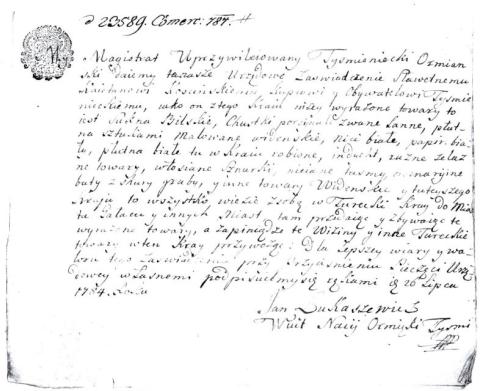 d 23589. Comerc: 787.
My Magistrat Uprzywilejowany Tysmienicki Ormian
ski daiemy tarasze Urzędowe Zaswiadczenie Sławetnemu
Kaietanowi Kupcowi y Obywatelowi Tysmie
nieckiemu, iako on z tego Kraiu niżey wyrażone towary to
iest Sukna Bilskie, Chustki zwane Lanne, płut
na Sztukami Malowane widenskie, nici białe, papir bia
ły, płutna białe tu w Kraiu robione, indycht, rużne żelaz
ne towary, włosiane Sznurki, niciane tasmy, ordinaryine
buty z Skury graby, y inne towary Widenskie y tuteyszego
Kraju to wszystko wiezie z sobą w Turecki Kray do Mias
ta Galacu y innych Miast tam przedaige y zbywaiąc te
wyrażone towary, a za piniądze te Wiziny y inne Tureckie
towary w ten Kray przywożąc: Dla lepszey wiary y wa
loru tego Zaswiadczenia przy Przycisnieniu Pieczęci Urzę
dowey własnemi podpisuiemysię rękami d 26 Lipca
1784. Roku
Jan Łukaszewicz
Wuit Naiij Ormijski Tysmi